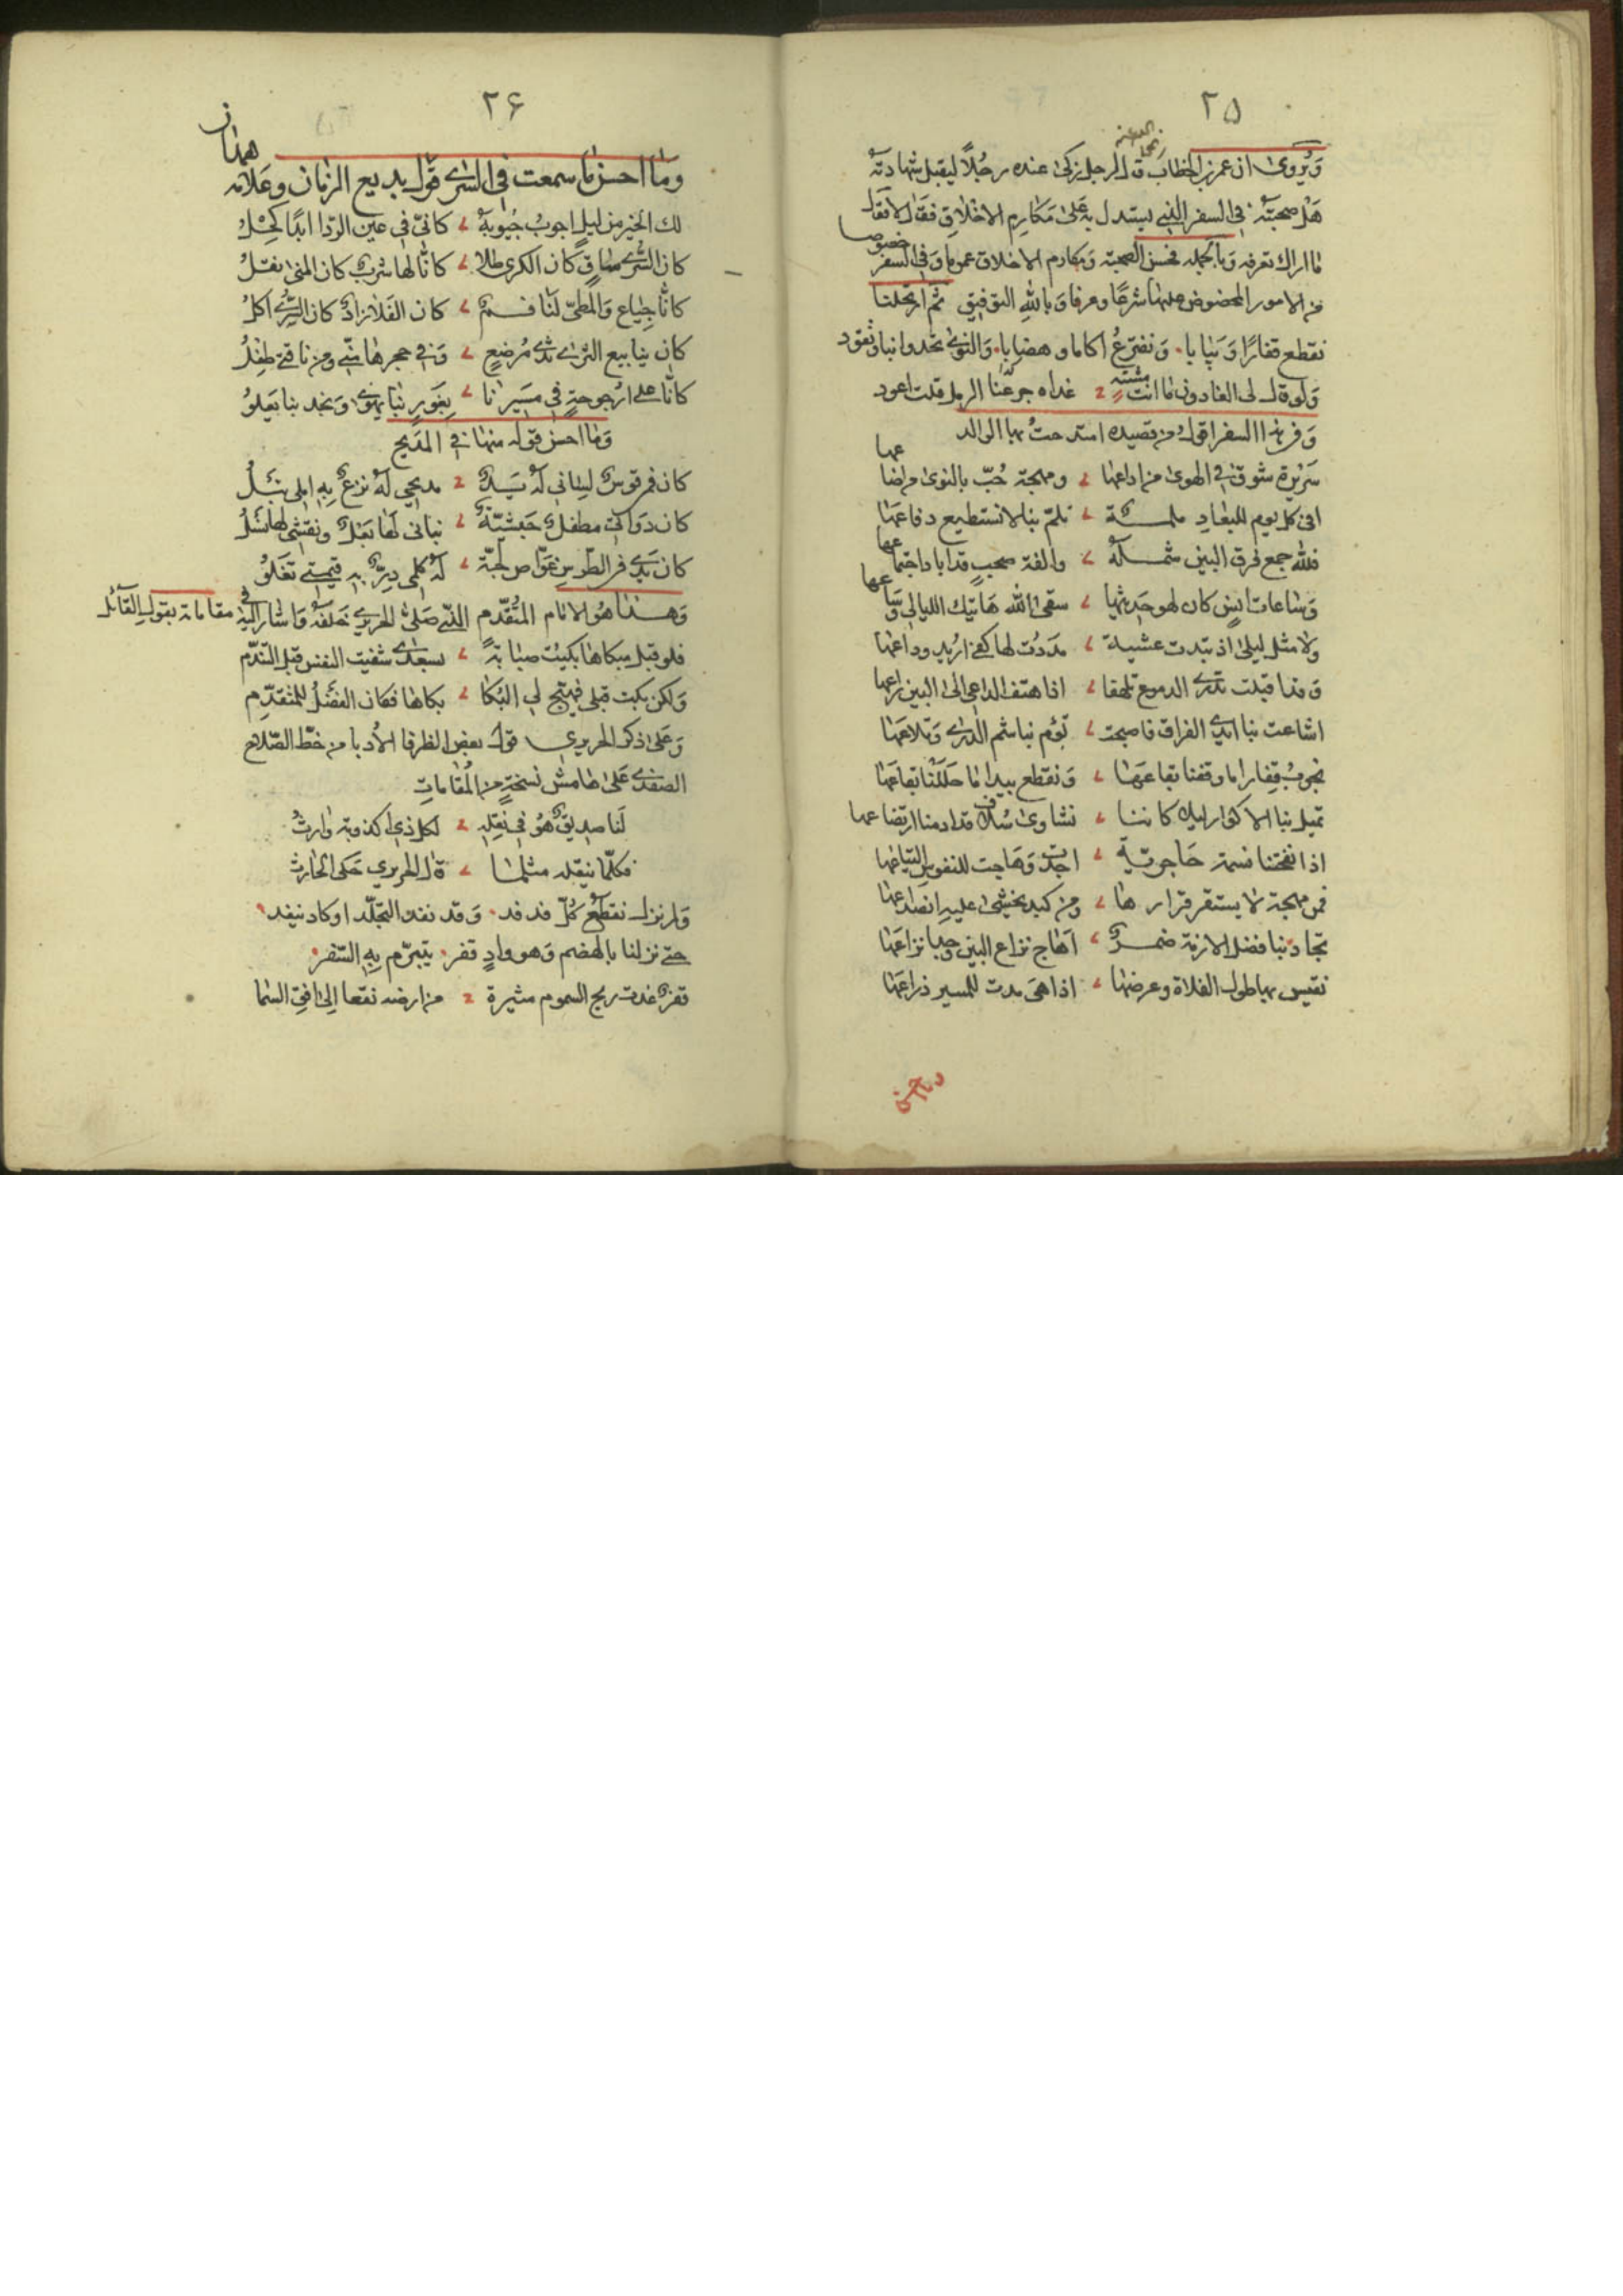 ٢٥
ويروى ان عمر بن الخطاب قال لرجل زكى عنده رجلا ليقبل شهادته
هل صحبته في السفر الذي يستدل به على مكارم الاخلاق فقال لا فقال
ما اراك تعرفه وبالجمله فحسن الصحبة ومكارم الاخلاق عموما وفي السفر خصوصا
من الامور المحضوض عليها شرعا وعرفا وبالله التوفيق ثم ارتحلنا
نقطع قفارا ويبابا. ونفترع اكاما وهضابا. والنوى تحدوا بنا وتقود
ولو قال لى الغادون ما انت مشته غداه جزعنا الرمل قلت اعود
وفي هذا السفر اقول من قصيده امتدحت بها الوالد
سريرة شوق في الهوى من اذاعها ومهجة حب بالنوى من اضاعها
افي كل يوم للبعاد ملمة تلم بنا لا نستطيع دفاعها
فلله جمع فرق البين شمله والفة صحب قد اباد اجتماعها
وساعات انس كان لهو حديثها سقى الله هاتيك الليالي وساعها
ولا مثل ليلى اذ تبدت عشية مددت لها كفى اريد وداعها
وقد اقبلت تذرى الدموع تلهفا اذا هتف الداعي الى البين راعها
اشاعت بنا ايدي الفراق فاصبحت تؤم بنا شم الذرى وتلاعها
نجوب قفارا ما وقفنا بقاعها ونقطع بيدا ما حللنا بقاعها
تميل بنا الاكوار ليلا كاننا نشاوى سلاف قد ادمنا ارتضاعها
اذا نفحتنا نسمة حاجرية اجدت وهاجت للنفوس التياعها
فمن مهجة لا يستقر قرارها ومن كبد يخشى عليه انصداعها
تجاذبنا فضل الازمة ضمر اهاج نزاع البين وجدا نزاعها
نقيس بها طول الفلاة وعرضها اذا هي مدت للمسير ذراعها
٢٦
وما احسن ما سمعت في السرى قول بديع الزمان وعلامه همدان
لك الخير من ليل اجوب جيوبه كاني في عين الردا ابدا كحل
كان السرى ساق كان الكرى طلا كانا لها شرب كان المنى نقل
كانا جياع والمطي لنا فم كان الفلا زاد كان السرى اكل
كان ينابيع الثرى ثدى مرضع وفي حجرها مني ومن ناقتي طفل
كانا على ارجوحة في مسيرنا بغور بنا تهوى ونجد بنا تعلو
وما احسن قوله منها في المديح
كان فمي قوس لساني له يد مديحي له نزع به املي نبل
كان دواتي مطفل حبشية بناني لها بعل ونقشي لها نسل
كان يدي في الطرس غواص لجة له كلمى در به قيمتي تغلو
وهذا هو الامام المتقدم الذي صلى الحريري خلفه واشار اليه في مقاماته بقول القائل
فلو قبل مبكاها بكيت صبابة بسعدى شفيت النفس قبل التندم
ولكن بكت قبلى فهيج لى البكا بكاها فكان الفضل للمتقدم
وعلى ذكر الحريري قول بعض الظرفا الأدبا من خط الصلاح
الصفدي على هامش نسخة من المقامات
لنا صديق هو في نقله لكل ذي اكذوبة وارث
فكلما ينقله مثلما قال الحريري حكى الحارث
ولم نزل نقطع كل فدفد. وقد نفد التجلد او كاد ينفد
حتى نزلنا بالهضم وهو واد قفر. يتبرم به السفر.
قفر غدت ريح السموم مثيرة من ارضه نقعا الى افق السما